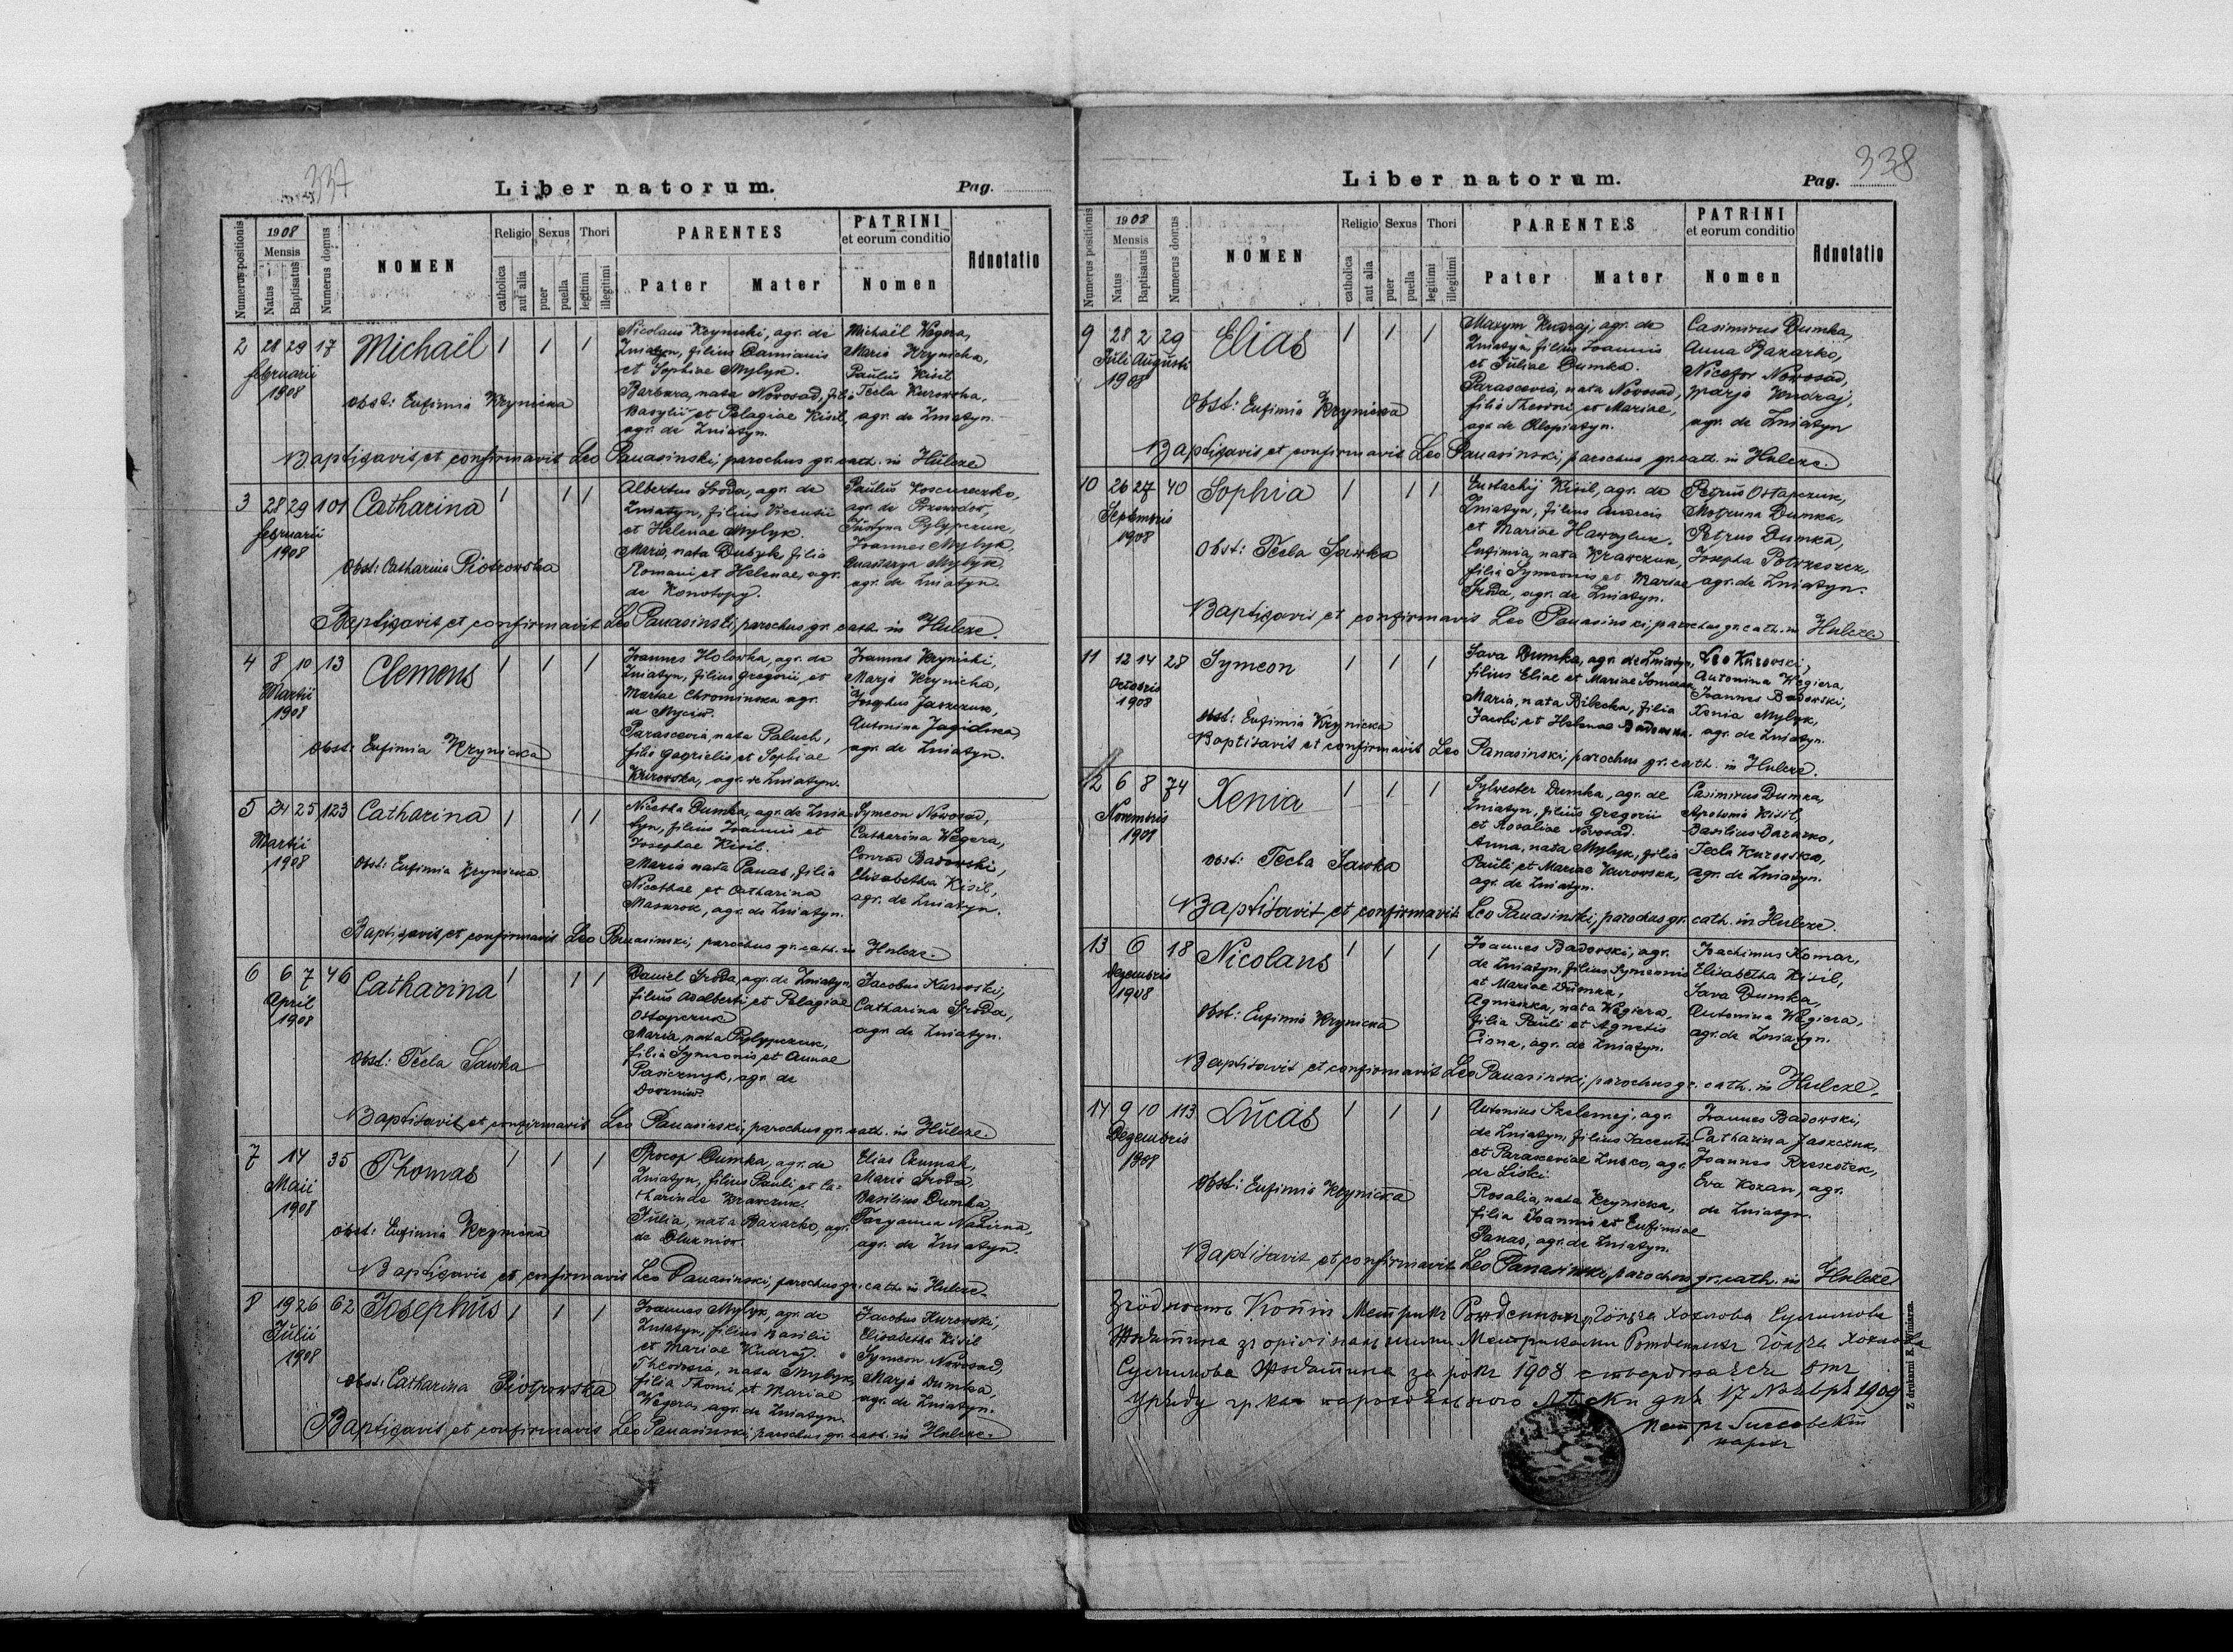 337
Liber natorum.
Pag.
Numerus positionis
1908
Mensis
Natus
Baptisatus
Numerus domus
NOMEN
Religio
catholica
aut alia
Sexus
puer
puella
Thori
legitimi
illegitimi
PARENTES
Pater
Mater
PATRINI
et eorum conditio
Nomen
Adnotatio
2 28 29 17 Michaël 1 1 1
februarii
1908
Obst: Eufimia Krynicka
Nicolaus Krynicki, agr. de
Zniatyn, filius Damianis
et Sophiae Mylyk.
Barbara, nata Novosad, filia
Basylii et Pelagiae Kisil,
agr. de Zniatyn.
Michaël Wegera,
Maria Krynicka,
Paulus Kisil
Tecla Kurowska,
agr. de Zniatyn.
Baptisavit et confirmavit Leo Panasinski, parochus gr. cath. in Hulcze
3 28 29 101 Catharina 1 1 1
februarii
1908
Obst: Catharina Piotrowska
Albertus Sroda, agr. de
Zniatyn, filius Vicentii
et Helenae Mylyk.
Maria, nata Dubyk, filia
Romani et Helenae, agr.
de Konotopy.
Paulus
agr. de
Justyna Pylypczuk,
Joannes Mylyk,
Anastazya Mylyk
agr. de Zniatyn.
Baptisavit et confirmavit Leo Panasinski, parochus gr. cath. in Hulcze.
4 8 10 13 Clemens 1 1 1
Martii
1908
Obst: Eufimia Krynicka
Joannes Holowka, agr. de
Zniatyn, filius Gregorii, et
Mariae Chrominska agr.
de Myciw.
Parascevia, nata Paluch,
filia Gabrielis et Sophiae
Kurowska, agr. de Zniatyn.
Joannes Krynicki,
Marja Krynicka,
Josephus Jaszczuk,
Antonina Jagielska,
agr. de Zniatyn.
5 24 25 123 Catharina 1 1 1
Martii
1908
Obst: Eufimia Krynicka
Nicetha Dumka, agr. de Znia-
tyn, filius Joannis et
Josephae Kisil.
Maria nata Panas, filia
Nicethae et Catharina
Mazurok, agr. de Zniatyn.
Symeon Novosad,
Catharina Wegera,
Conrad Badowski,
Elisabetha Kisil,
agr. de Zniatyn.
Baptisavit et confirmavit Leo Panasinski, parochus gr. cath. in Hulcze.
6 6 7 46 Catharina 1 1 1
April
1908
Obst: Tecla Sawka
Daniel Sroda, agr. de Zniatyn,
filius Adalberti et Pelagiae
Ostapczuk
Maria, nata Pylypczuk,
filia Symeonis et Annae
Pasicznyk, agr. de
Jacobus Kurowski,
Catharina Sroda,
agr. de Zniatyn.
Baptisavit et confirmavit Leo Panasinski, parochus gr. cath. in Hulcze.
7 14 35 Thomas 1 1 1
Maii
1908
Obst: Eufimia Krynicka
Procop Dumka, agr. de
Zniatyn, filius Pauli et Ca-
tharinae Krawczuk.
Julia, nata Bazarko, agr.
de Dluzniow.
Elias Czumak,
Maria Sroda,
Basilius Dumka,
agr. de Zniatyn.
Baptisavit et confirmavit Leo Panasinski, parochus gr. cath. in Hulcze.
8 19 26 62 Josephus 1 1 1
Julii
1908
Obst: Catharina Piotrowska
Joannes Mylyk, agr. de
Zniatyn, filius Basilii
et Mariae Kudraj.
Theodosia, nata Mylyk,
filia Thomi et Mariae
Wegera, agr. de Zniatyn.
Jacobus Kurowski,
Elisabetha Kisil
Symeon Novosad,
Marja Dumka,
agr. de Zniatyn.
Baptisavit et confirmavit Leo Panasinski, parochus gr. cath. in Hulcze.
338
Liber natorum.
Pag.
Numerus positionis
1908
Mensis
Natus
Baptisatus
Numerus domus
NOMEN
Religio
catholica
aut alia
Sexus
puer
puella
Thori
legitimi
illegitimi
PARENTES
Pater
Mater
PATRINI
et eorum conditio
Nomen
Adnotatio
9 28 2 29 Elias 1 1 1
Juli Augusti
1908
Obst: Eufimia Krynicka
Maxym Kudraj, agr. de
Zniatyn filius Joannis
et Juliae Dumka.
Parascevia, nata Novosad,
filia Theodori et Mariae,
agr. de Chlopiatyn.
Casimirus Dumka,
Anna Bazarko,
Nicefor Novosad,
Marja Kudraj,
agr. de Zniatyn
Baptisavit et confirmavit Leo Panasinski, parochus gr. cath. in Hulcze.
10 26 27 40 Sophia 1 1 1
Septembris
1908
Obst: Tecla Sawka
Eustachij Kisil, agr. de
Zniatyn, filius Andreis
et Mariae Hawryluk.
Eufimia, nata Krawczuk,
filia Symeonis et Mariae
Sroda, agr. de Zniatyn.
Petrus Ostapczuk,
Motruna Dumka,
Petrus Dumka,
Josepha Potrzeszcz,
agr. de Zniatyn.
Baptisavit et confirmavit Leo Panasinski, parochus gr. cath. in Hulcze
11 12 14 28 Symeon 1 1 1
Octobris
1908
Obst: Eufimia Krynicka
Sava Dumka, agr. de Zniatyn,
filius Eliae et Mariae
Maria, nata Bilecka, filia
Jacobi et Helenae Badowska.
Leo Kurowski,
Antonina Wegiera,
Joannes Badowski,
Xenia Mylyk,
agr. de Zniatyn.
Baptisavit et confirmavit Leo Panasinski, parochus gr. cath. in Hulcze.
12 6 8 74 Xenia 1 1 1
Novembris
1908
Obst: Tecla Sawka
Sylvester Dumka, agr. de
Zniatyn, filius Gregorii
et Rosaliae Novosad.
Anna, nata Mylyk, filia
Pauli et Mariae Kurowska,
agr. de Zniatyn.
Casimirus Dumka,
Apolonia Kisil,
Basilius Bazarko,
Tecla Kurowska,
agr. de Zniatyn.
Baptisavit et confirmavit Leo Panasinski, parochus gr. cath. in Hulcze.
13 6 18 Nicolaus 1 1 1
Dezembris
1908
Obst: Eufimia Krynicka
Joannes Badowski, agr.
de Zniatyn, filius Symeonis
et Mariae Dumka,
Agnieszka, nata Wegiera,
filia Pauli et Agnetis
Ciona, agr. de Zniatyn.
Joachimus Komar,
Elisabetha Kisil,
Sava Dumka,
Antonina Wegiera,
agr. de Zniatyn.
Baptisavit et confirmavit Leo Panasinski, parochus gr. cath. in Hulcze.
14 9 10 113 Lucas 1 1 1
Dezembris
1908
Obst: Eufimia Krynicka
Antonius Szelemej, agr.
de Zniatyn, filius Jaccentii
et Parasceviae Zubko, agr.
de Liski.
Rosalia, nata Krynicka,
filia Joannis et Eufimiae
Panas, agr. de Zniatyn.
Joannes Badowski,
Catharina Jaszczuk,
Joannes
Eva Kozan, agr.
de Zniatyn.
Baptisavit et confirmavit Leo Panasinski, parochus gr. cath. in Hulcze
Згôдность Копіи Метрикъ Рожденныхъ
зъ оригинальными Метриками
за рôкъ 1908 стверджаєся отъ
Уряду гр. кат. дня 17 1909
Петръ
парох
Z drukarni E. Winiarza.